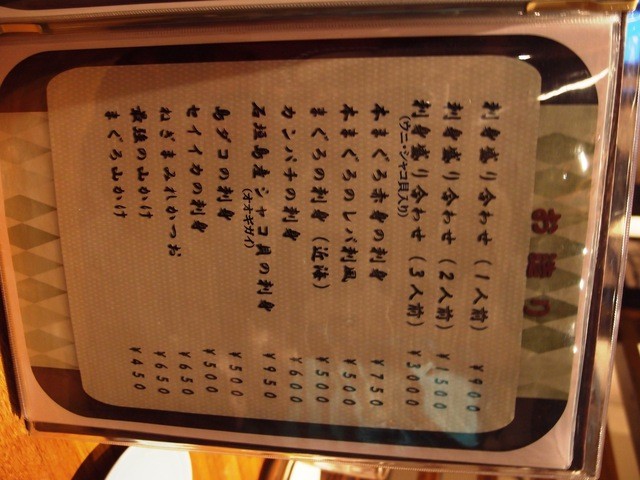 お造り
刺身盛り合わせ（1人前） ¥900
刺身盛り合わせ（2人前） ¥1500
刺身盛り合わせ（3人前） ¥3000
(ウニ・シャコ貝入り)
本まぐろ赤身の刺身 ¥750
本まぐろのレバ刺風 ¥500
まぐろの刺身（近海） ¥500
カンパチの刺身 ¥600
石垣島産シャコ貝の刺身 ¥950
(オオギガイ)
島ダコの刺身 ¥500
セイイカの刺身 ¥500
ねぎまみれかつお ¥650
最強の山かけ ¥650
まぐろ山かけ ¥450